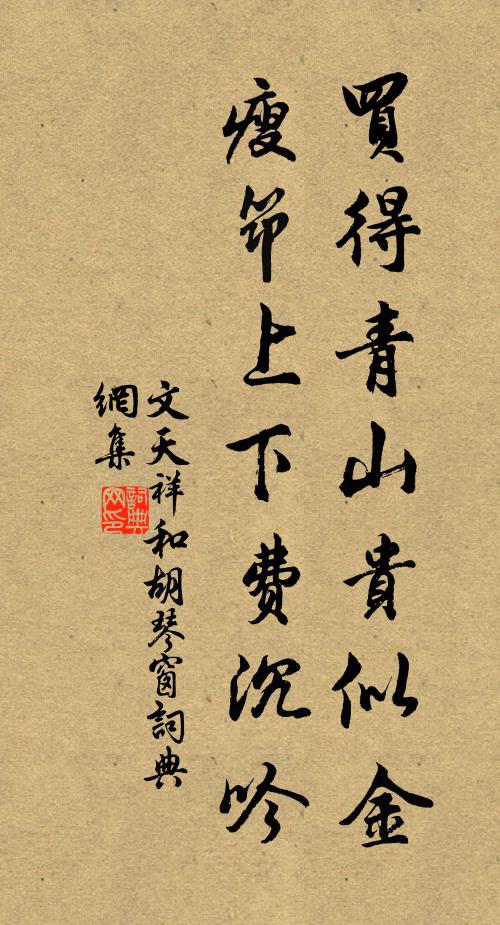 買得青山貴似金
瘦筇上下費沉吟
文天祥和胡琴窗詞典
網集
詞典
网印